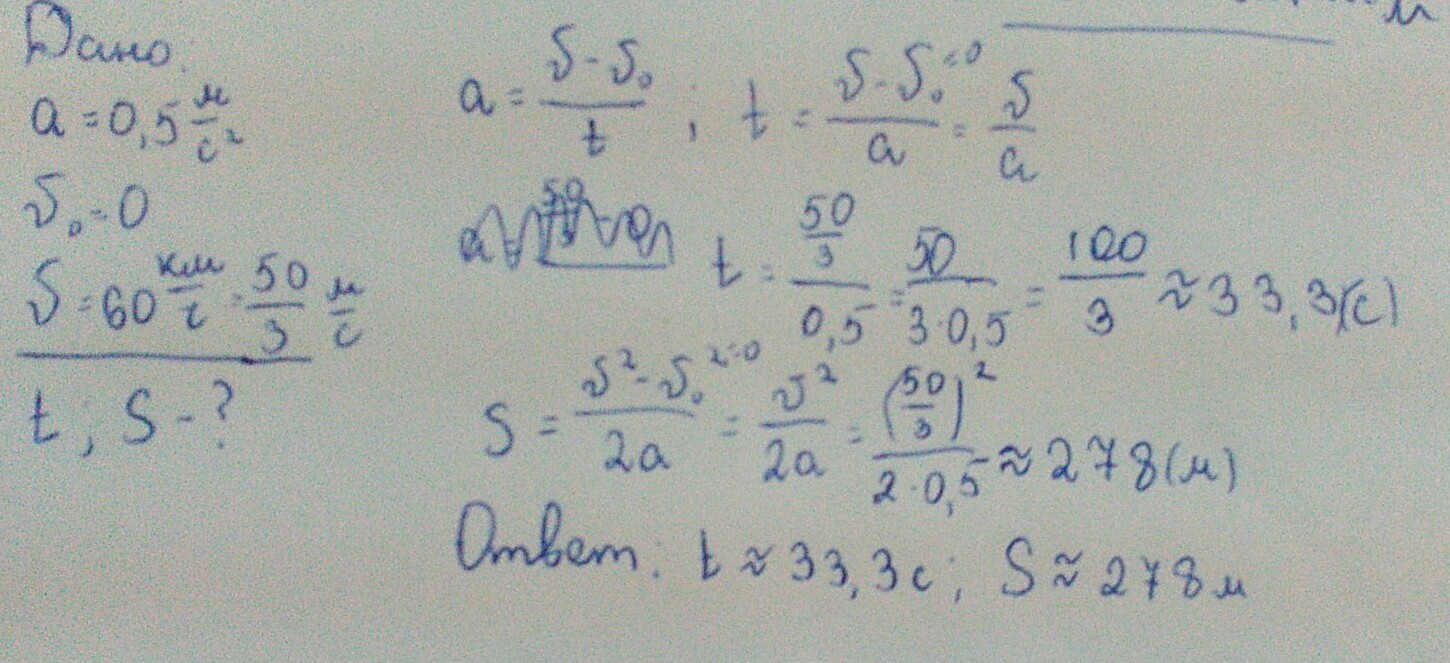 Дано:
a = 0,5 м/с²
υ₀ = 0
υ = 60 км/г = 50/3 м/с
t; S - ?
a = (υ - υ₀)/t ; t = (υ - υ₀⁼⁰)/a = υ/a
t = (50/3)/0,5 = 50/(3·0,5) = 100/3 ≈ 33,3(с)
S = (υ² - υ₀²⁼⁰)/2a = υ²/2a = (50/3)²/(2·0,5) ≈ 278(м)
Ответ: t ≈ 33,3с; S ≈ 278м